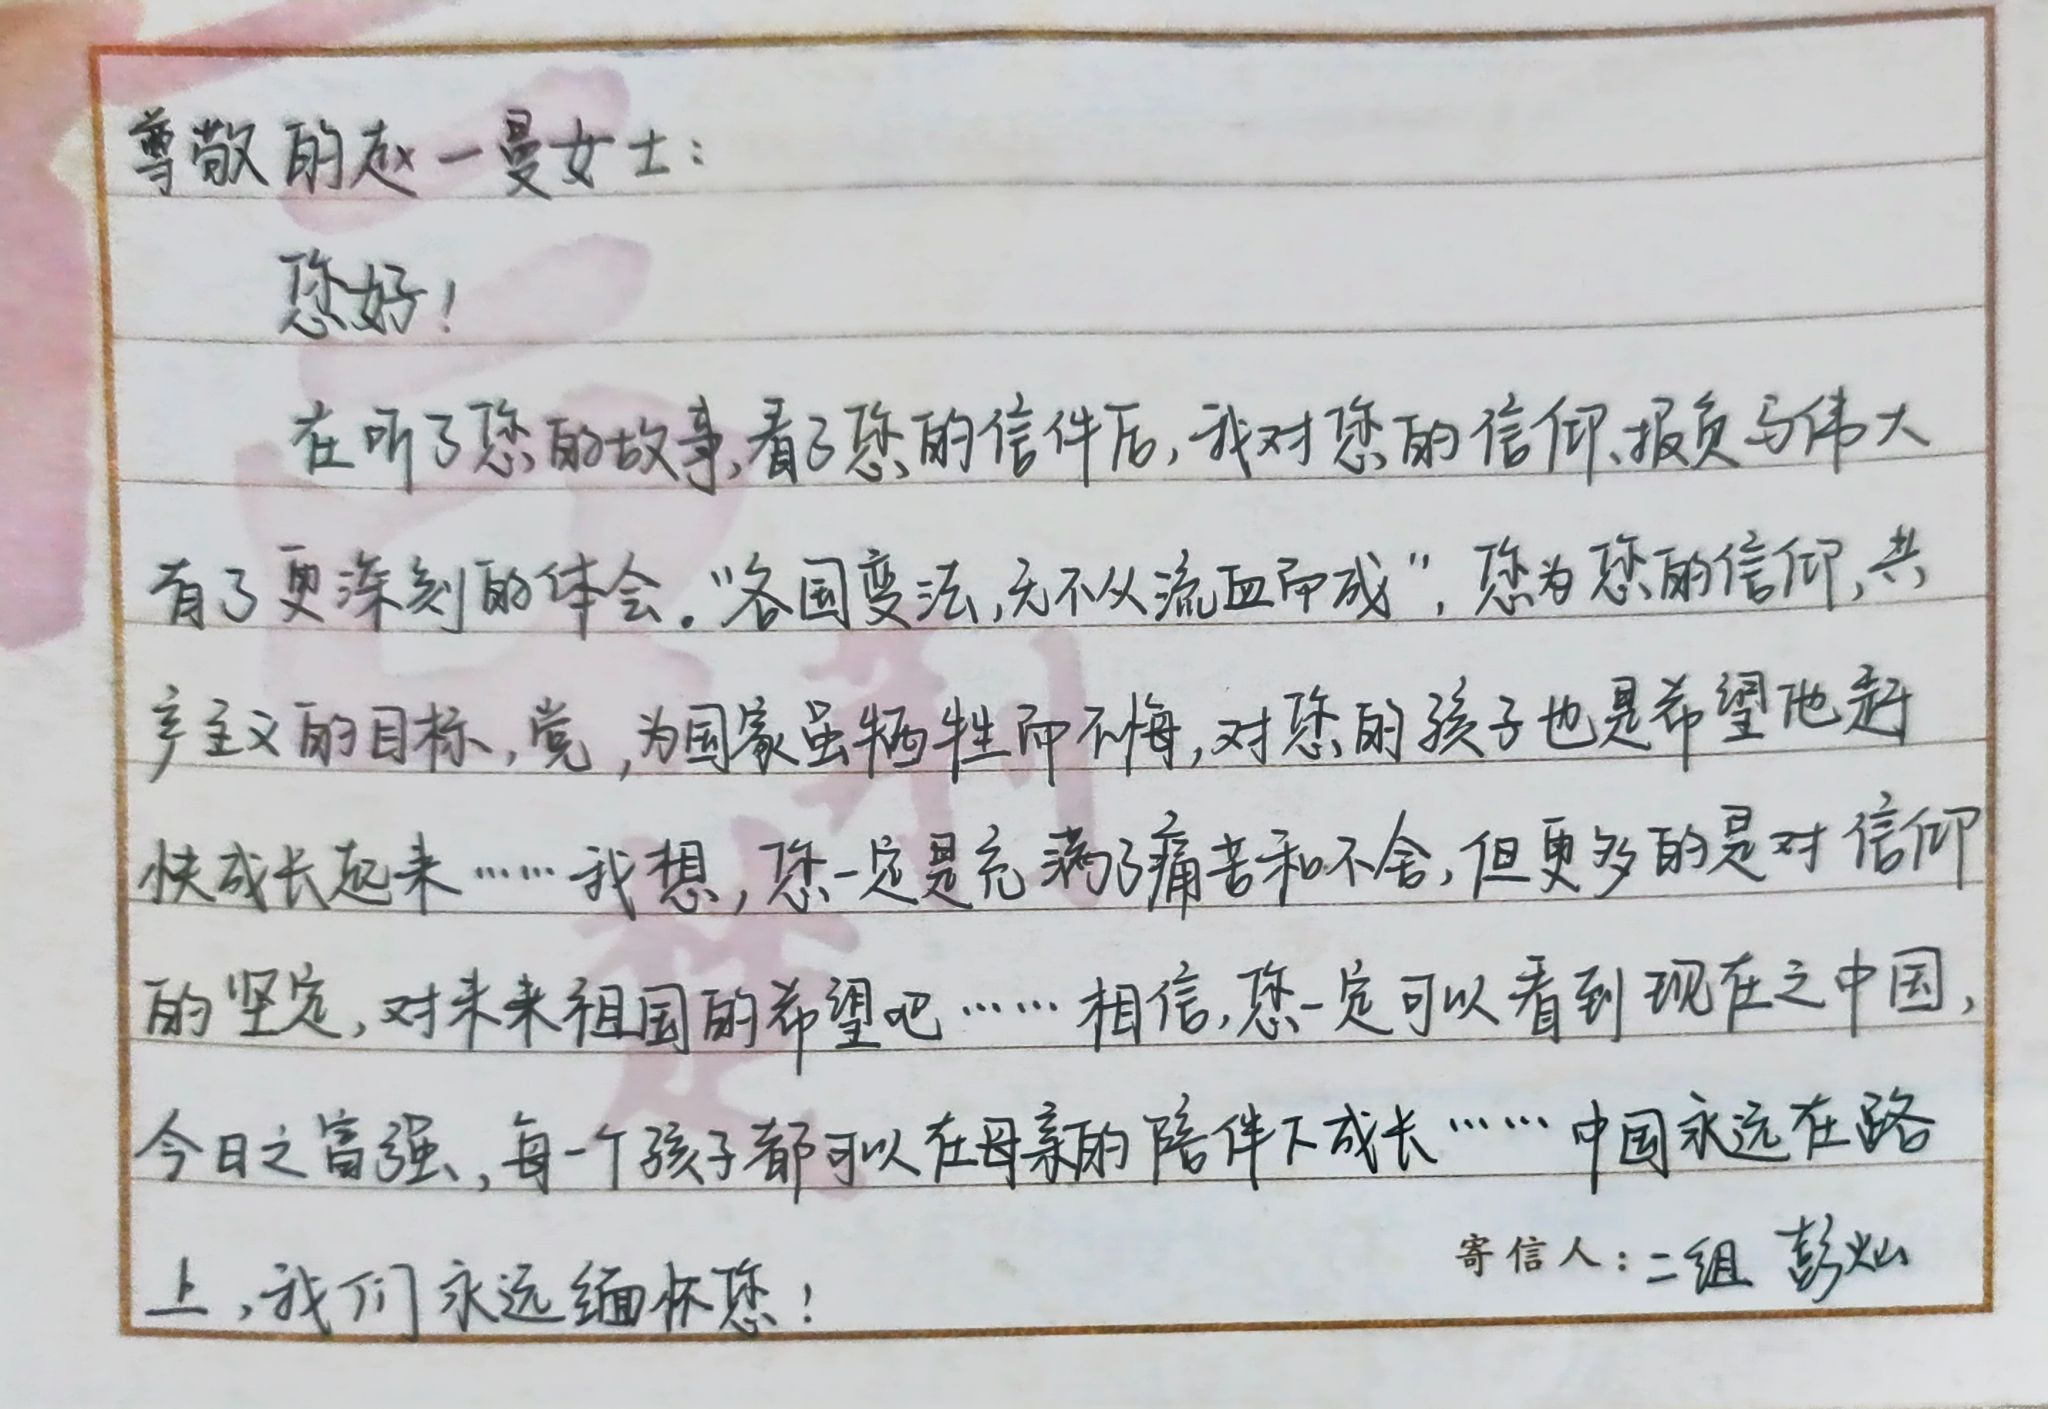 尊敬的赵一曼女士：
您好！
在听了您的故事，看了您的信件后，我对您的信仰、报负与伟大
有了更深刻的体会。“各国变法，无不从流血而成”，您为您的信仰，共
产主义的目标，党，为国家虽牺牲而不悔，对您的孩子也是希望他赶
快成长起来……我想，您一定是充满了痛苦和不舍，但更多的是对信仰
的坚定，对未来祖国的希望吧……相信，您一定可以看到现在之中国，
今日之富强，每一个孩子都可以在母亲的陪伴下成长……中国永远在路
上，我们永远缅怀您！
寄信人：二组 彭灿
荆
楚